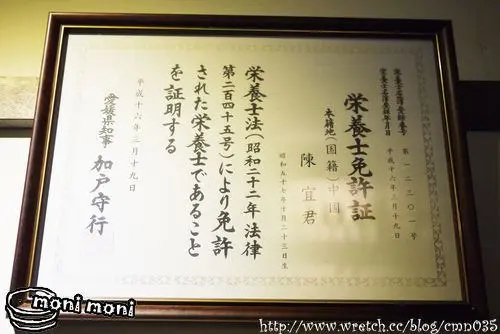 栄養士名簿登録番号 第一二三〇一号
栄養士名簿登録年月日 平成十六年三月十九日
栄養士免許証
本籍地(国籍)中国
陳宜君
昭和五十七年十月二十三日生
栄養士法(昭和二十二年法律
第二百四十五号)により免許
された栄養士であること
を証明する
平成十六年三月十九日
愛媛県知事 加戸守行
moni moni
http://www.wretch.cc/blog/cmn035